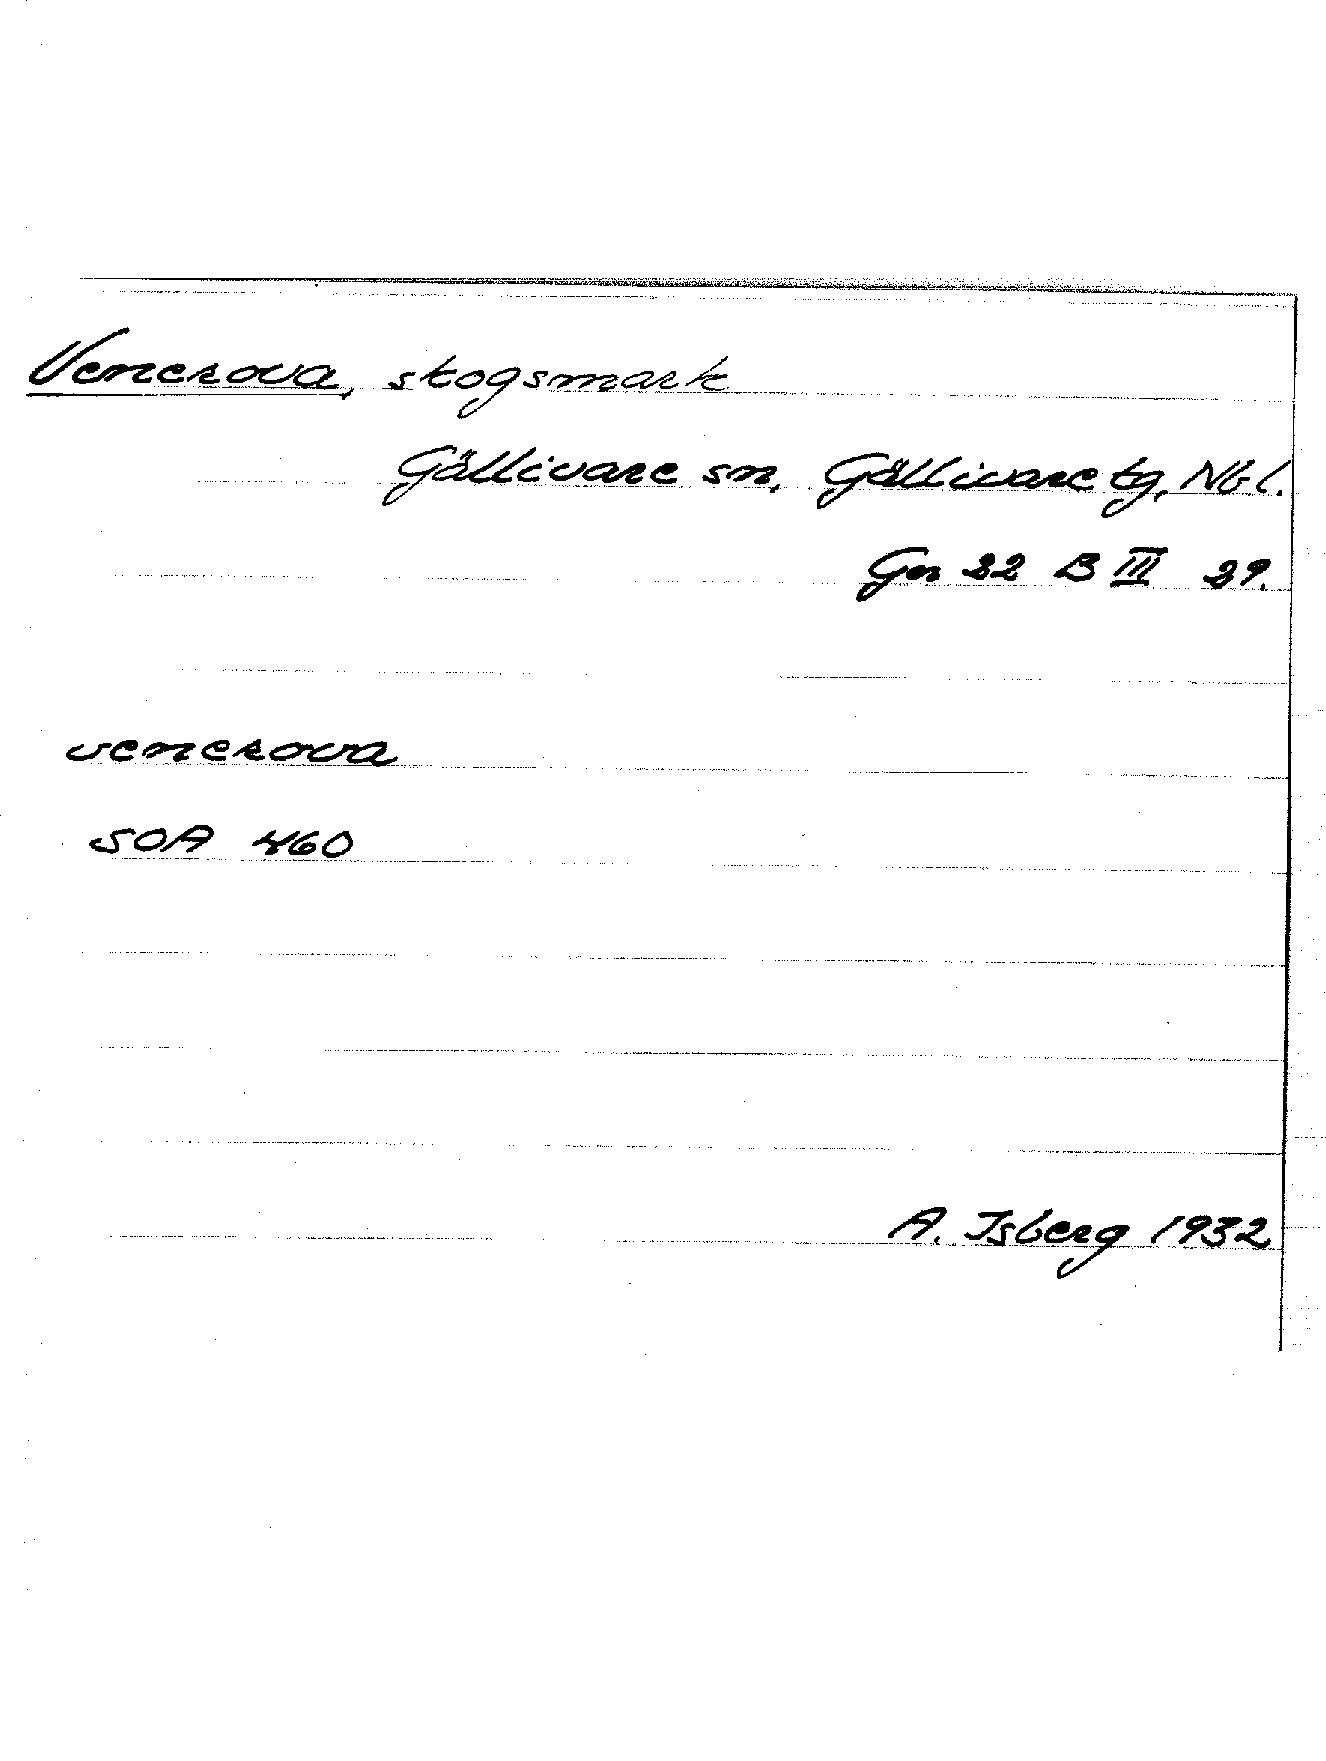 Venerova, skogsmark
Gällivare sn, Gällivare tg, Nbl.
Gen 22 B III 29.
venerova
SOA 460
A. Isberg 1932